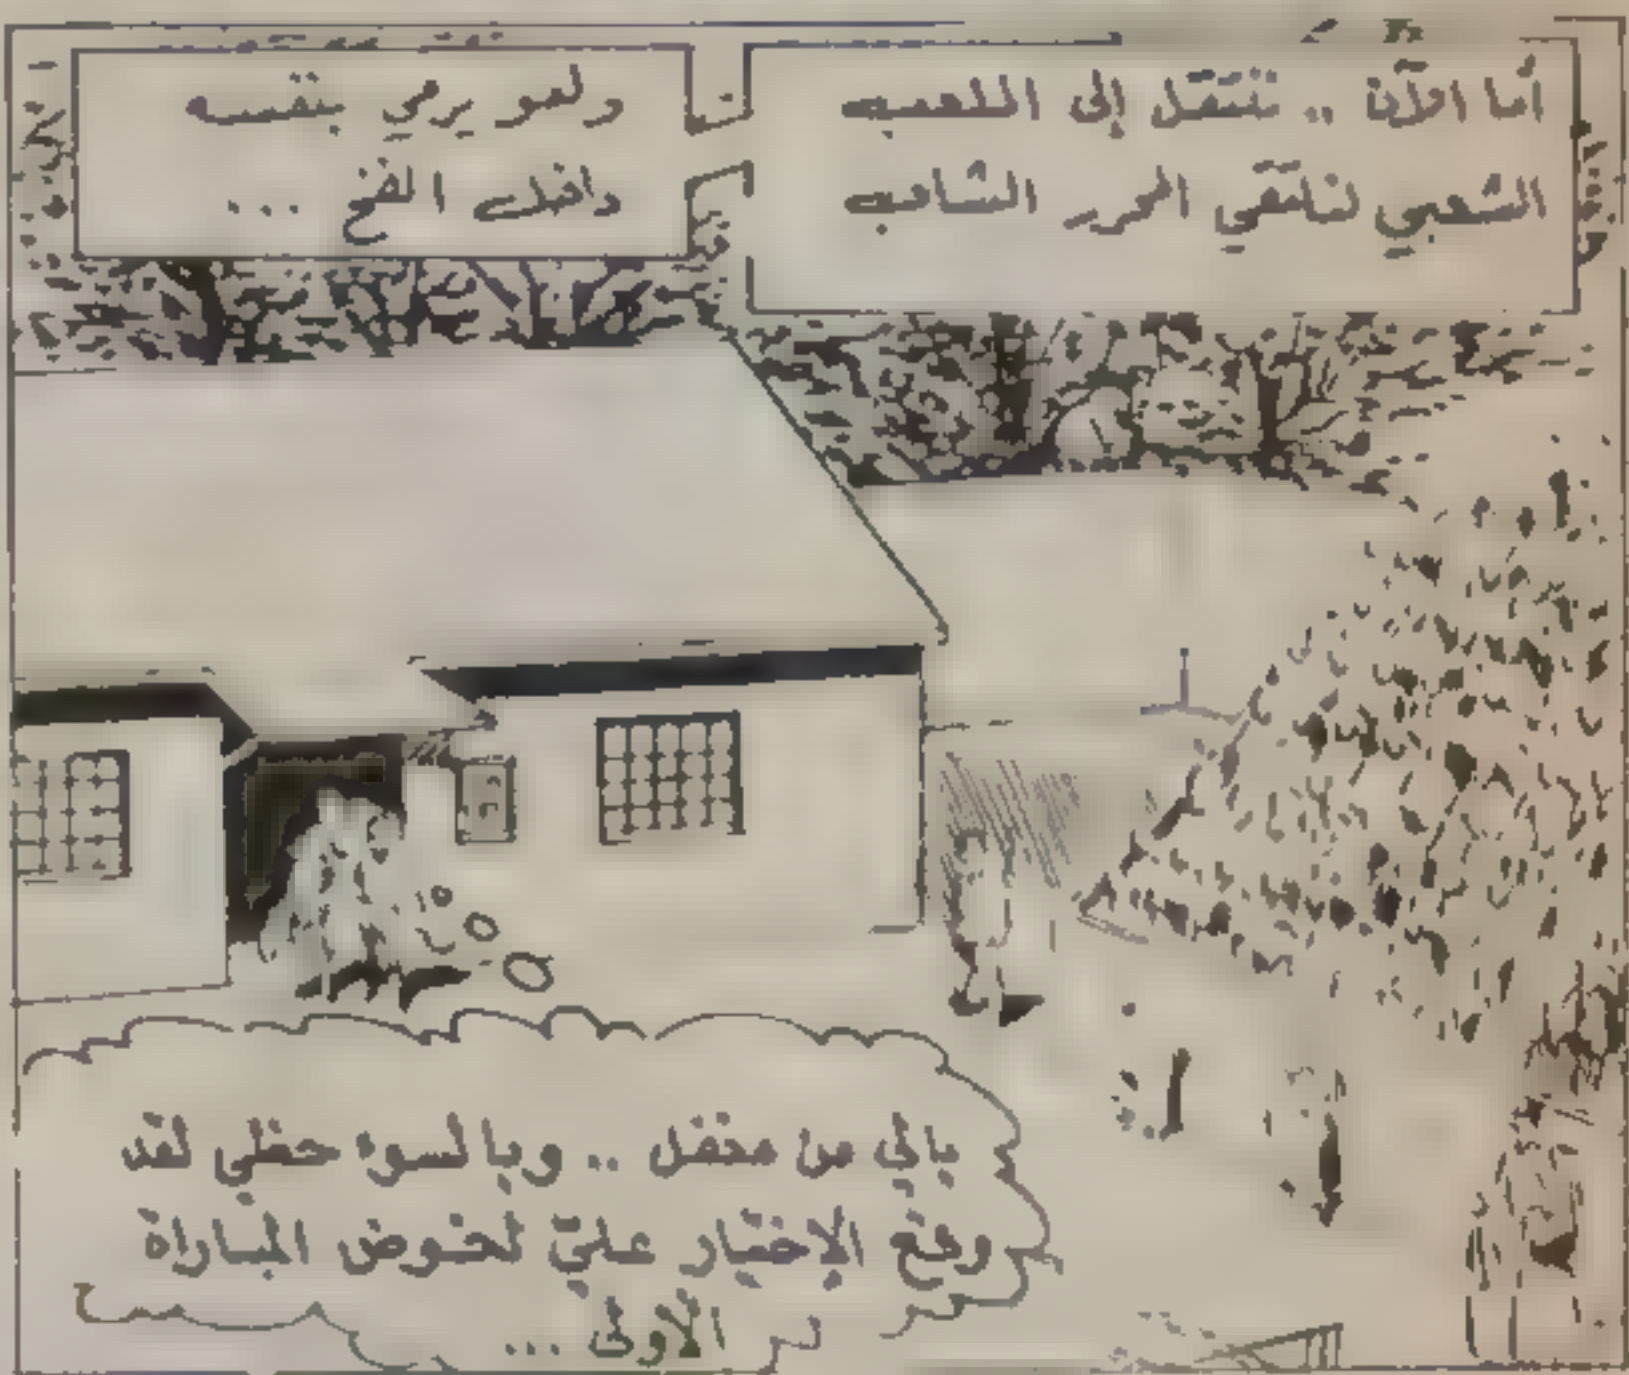 أما الآن .. ننتقل إلى الملعب
الشعبي لنلتقي المحرر الشاب
وهو يرمي بنفسه
داخل الفخ ...
يالي من مغفل .. ويا لسوء حظي لقد
وقع الإختيار عليّ لخوض المباراة
الأولى ...